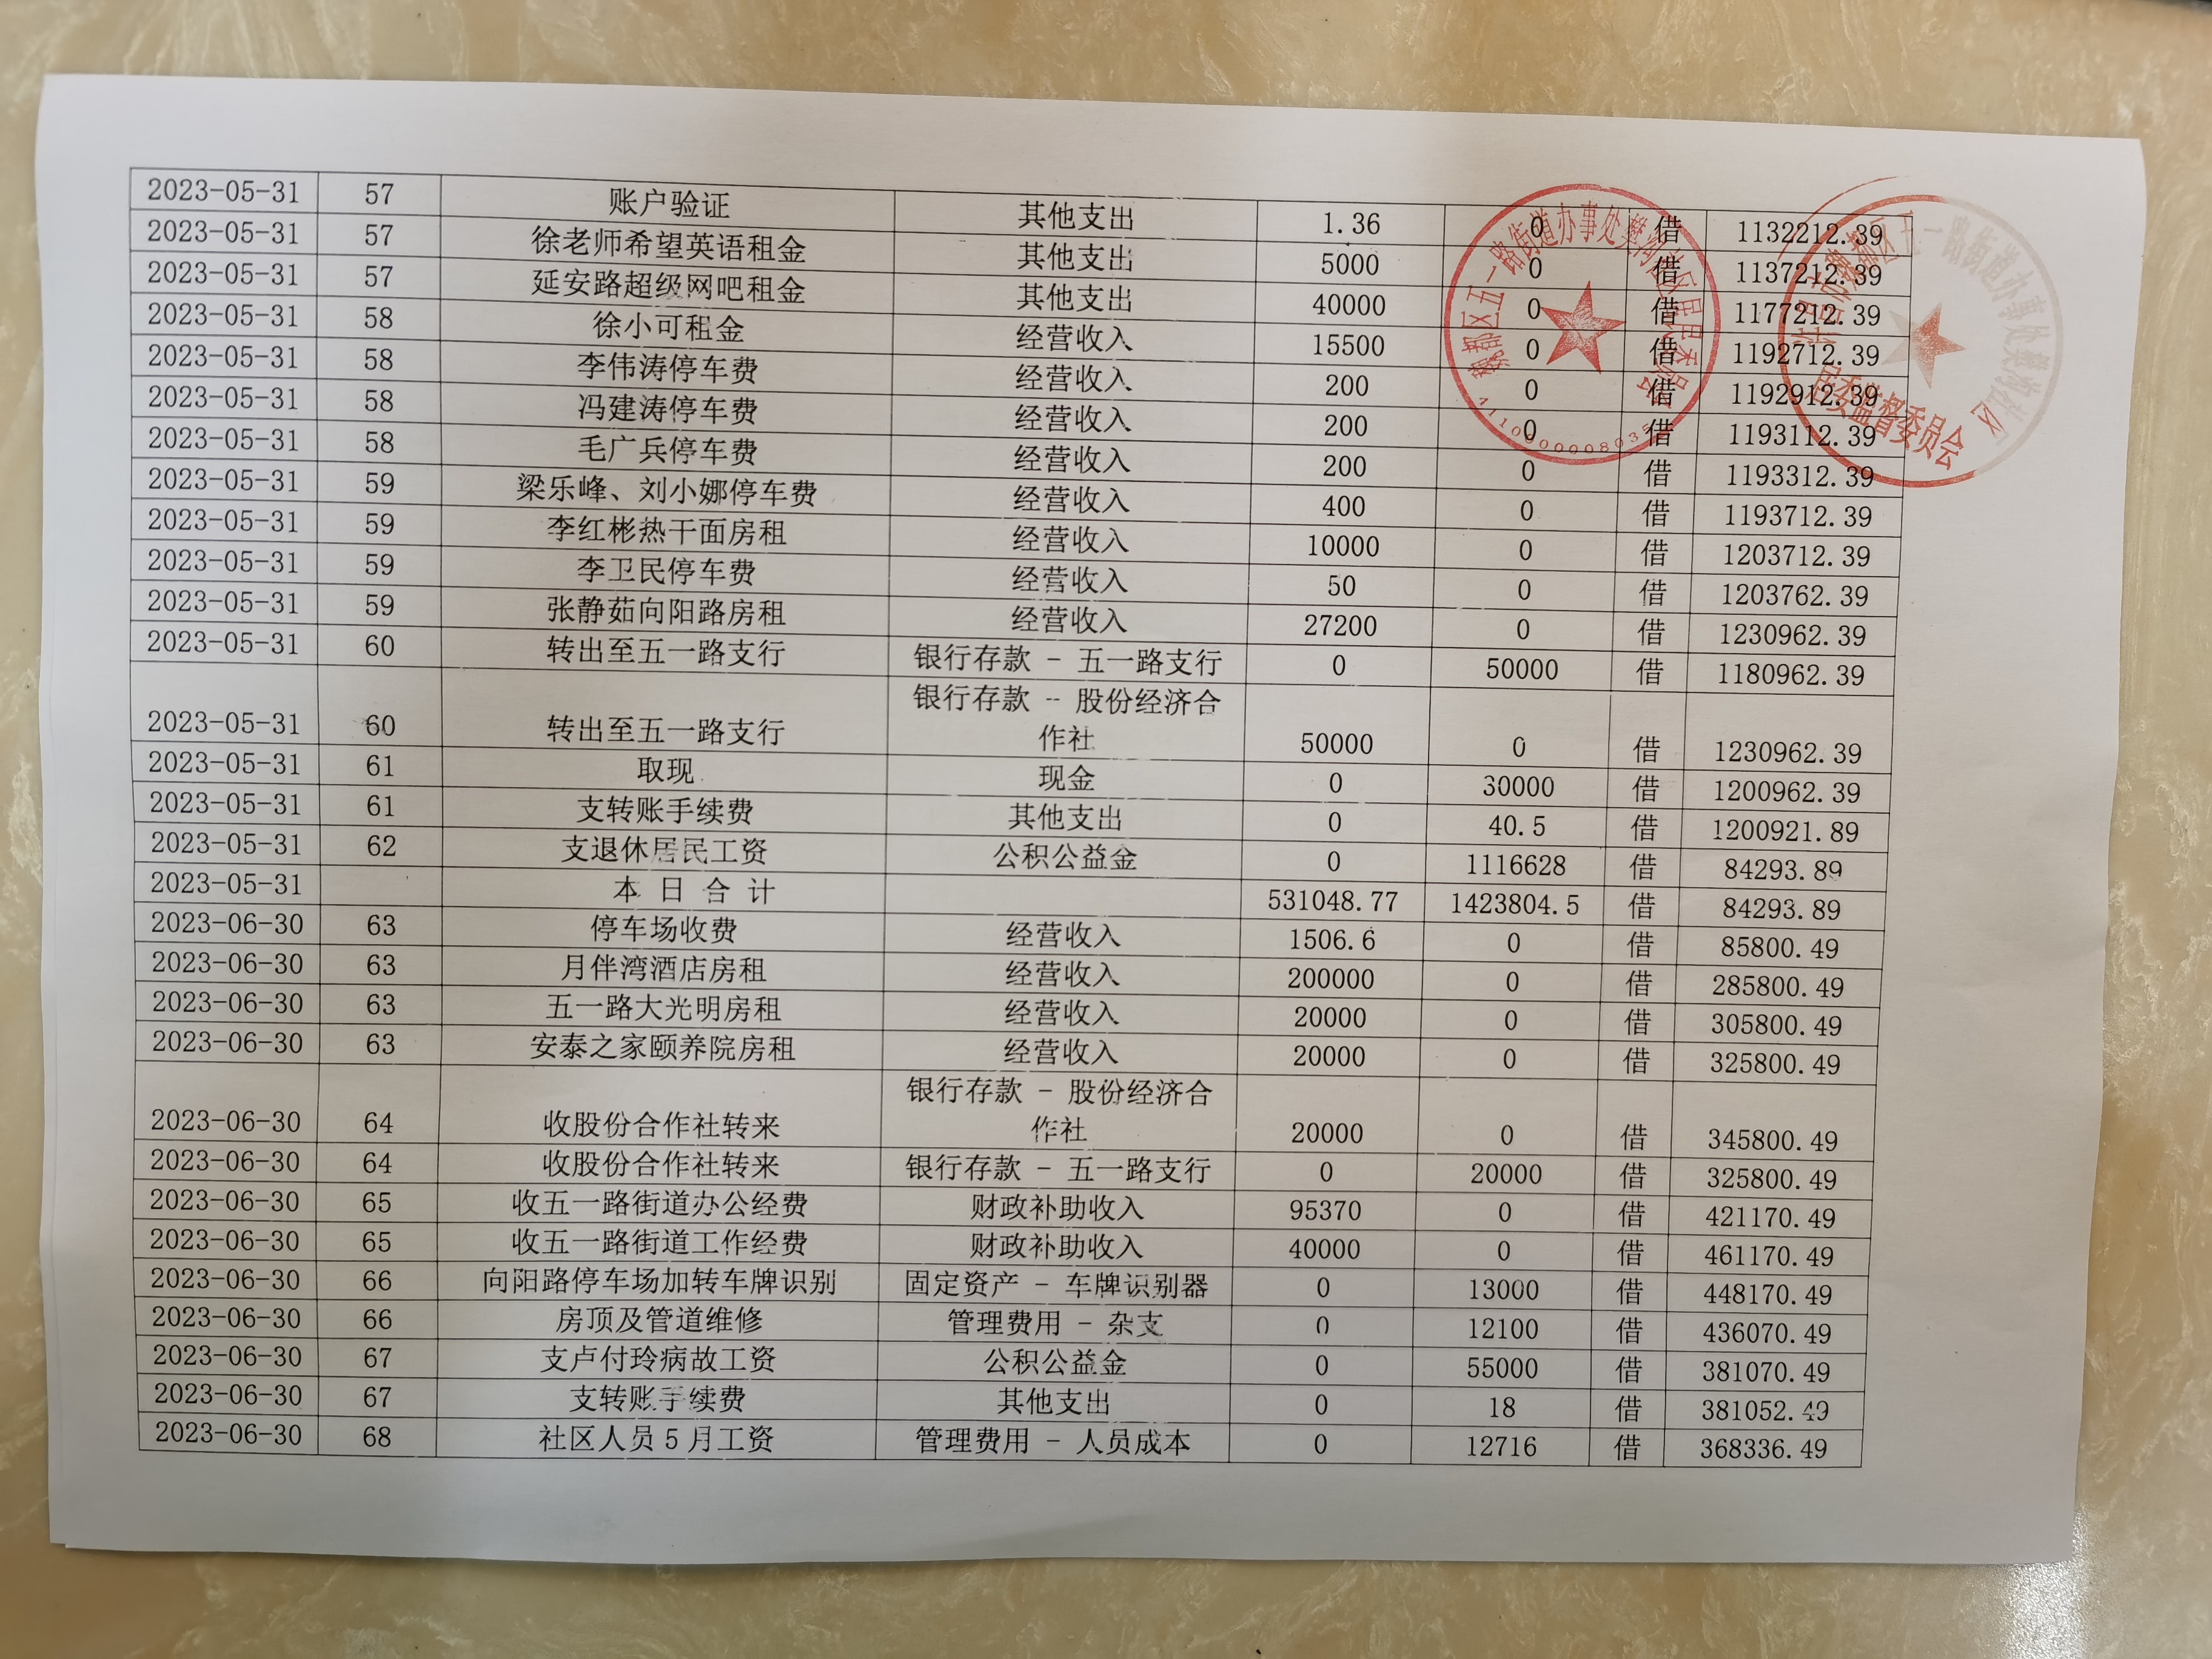 2023-05-31 57 账户验证 其他支出 1.36 0 借 1132212.39
2023-05-31 57 徐老师希望英语租金 其他支出 5000 0 借 1137212.39
2023-05-31 57 延安路超级网吧租金 其他支出 40000 0 借 1177212.39
2023-05-31 58 徐小可租金 经营收入 15500 0 借 1192712.39
2023-05-31 58 李伟涛停车费 经营收入 200 0 借 1192912.39
2023-05-31 58 冯建涛停车费 经营收入 200 0 借 1193112.39
2023-05-31 58 毛广兵停车费 经营收入 200 0 借 1193312.39
2023-05-31 59 梁乐峰、刘小娜停车费 经营收入 400 0 借 1193712.39
2023-05-31 59 李红彬热干面房租 经营收入 10000 0 借 1203712.39
2023-05-31 59 李卫民停车费 经营收入 50 0 借 1203762.39
2023-05-31 59 张静茹向阳路房租 经营收入 27200 0 借 1230962.39
2023-05-31 60 转出至五一路支行 银行存款 - 五一路支行 0 50000 借 1180962.39
2023-05-31 60 转出至五一路支行 银行存款 - 股份经济合作社 50000 0 借 1230962.39
2023-05-31 61 取现 现金 0 30000 借 1200962.39
2023-05-31 61 支转账手续费 其他支出 0 40.5 借 1200921.89
2023-05-31 62 支退休居民工资 公积公益金 0 1116628 借 84293.89
2023-05-31 本 日 合 计 531048.77 1423804.5 借 84293.89
2023-06-30 63 停车场收费 经营收入 1506.6 0 借 85800.49
2023-06-30 63 月伴湾酒店房租 经营收入 200000 0 借 285800.49
2023-06-30 63 五一路大光明房租 经营收入 20000 0 借 305800.49
2023-06-30 63 安泰之家颐养院房租 经营收入 20000 0 借 325800.49
2023-06-30 64 收股份合作社转来 银行存款 - 股份经济合作社 20000 0 借 345800.49
2023-06-30 64 收股份合作社转来 银行存款 - 五一路支行 0 20000 借 325800.49
2023-06-30 65 收五一路街道办公经费 财政补助收入 95370 0 借 421170.49
2023-06-30 65 收五一路街道工作经费 财政补助收入 40000 0 借 461170.49
2023-06-30 66 向阳路停车场加转车牌识别 固定资产 - 车牌识别器 0 13000 借 448170.49
2023-06-30 66 房顶及管道维修 管理费用 - 杂支 0 12100 借 436070.49
2023-06-30 67 支卢付玲病故工资 公积公益金 0 55000 借 381070.49
2023-06-30 67 支转账手续费 其他支出 0 18 借 381052.49
2023-06-30 68 社区人员5月工资 管理费用 - 人员成本 0 12716 借 368336.49
魏都区五一路街道办事处
社区居民委员会
五一路街道办事处
居务监督委员会